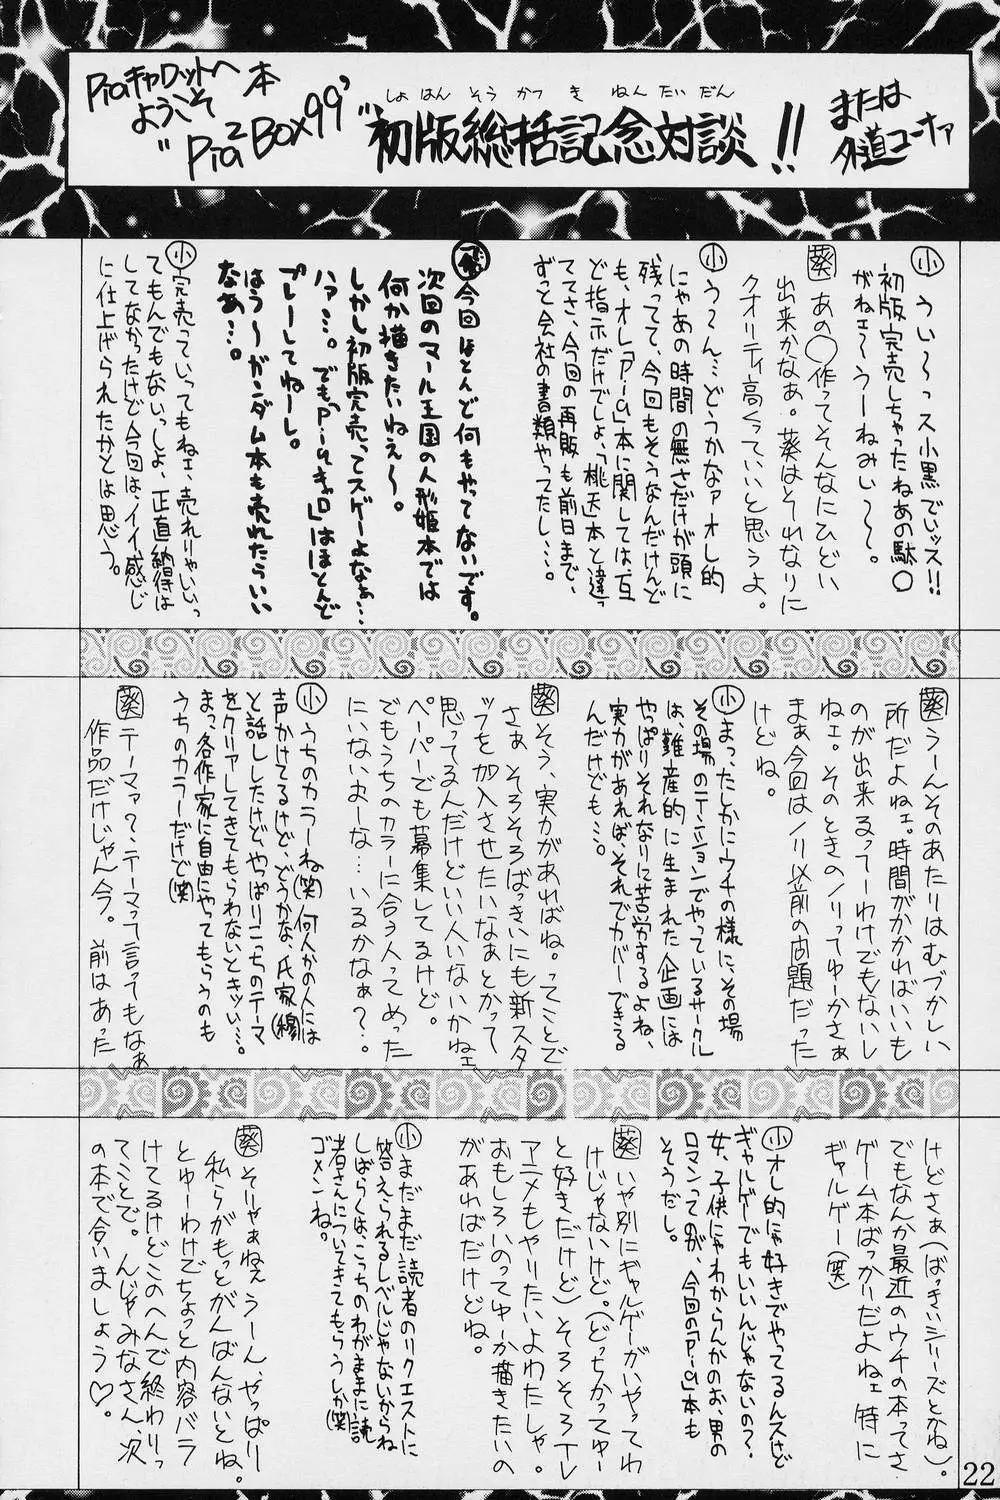 Piaキャロットへ
ようこそ
本
"Pia² Box99'"
しょはんそうかつきねんたいだん
初版総括記念対談!!
または
外道コーナァ
小 うぃ〜っス小黒でいッス!!
初版完売しちゃったねあの駄〇
がねェ〜うーねみぃ〜〜。
葵 あの〇作ってそんなにひどい
出来かなぁ。葵はそれなりに
クオリティ高くっていいと思うよ。
小 う〜ん…どうかなァオレ的
にゃあの時間の無さだけが頭に
残ってて、今回もそうなんだけんど
も、オレ「Pia」本に関しては、互
ど指示だけでしょ、「桃天」本と違っ
ててさ、今回の再販も前日まで、
ずっと会社の書類やってたし…。
今回ほとんど何もやってないです。
次回のマール王国の人形姫本では
何か描きたいねぇ〜。
しかし初版完売ってスゲーよなぁ…
ハァ…。でも「Piaキャロ」はほとんど
プレーしてねーし。
はう〜ガンダム本も売れたらいい
なぁ…。
小 完売っていってもねェ、売れりゃいいっ
てもんでもないっしょ、正直納得は
してなかったけど今回は、イイ感じ
に仕上げられたかとは思う。
葵 うーんそのあたりはむづかしい
所だよねェ。時間がかかればいいも
のが出来るってーわけでもないし
ねェ。そのときのノリってゆーかさぁ
まぁ今回はノリ以前の問題だった
けどね。
小 まったしかにウチの様に、その場
その場のテンションでやっているサークル
は、難産的に生まれた企画には
やっぱりそれなりに苦労するよね、
実力があれば、それでカバーできる
んだけども…。
葵 そう、実力があればね。ってことで
さぁ そろそろばっきいにも新スタ
ッフを加入させたいなぁとかって
思ってるんだけどいい人いないかねェ
ペーパーでも募集してるけど。
でもうちのカラーに合う人ってめった
にいないよーな…いるかなぁ?…。
小 うちのカラーね(笑)何人かの人には
声かけてるけど、どうかな、氏家(穆)
と話ししたけど、やっぱりこっちのテーマ
をクリアしてきてもらわないとキッい…。
まっ、各作家に自由にやってもらうのも
うちのカラーだけど(笑)
葵 テーマァ?、テーマって言ってもなぁ
作品だけじゃん今。 前はあった
けどさぁ(ばっきいシリーズとかね)。
でもなんか最近のウチの本ってさ
ゲーム本ばっかりだよねェ 特に
ギャルゲー(笑)
小 オレ的にゃ好きでやってるんスけど
ギャルゲーでもいいんじゃないの?、
女、子供にゃわからんかのお、男の
ロマンってのが、今回の「Pia」本も
そうだし。
葵 いや別にギャルゲーがいやってわ
けじゃないけど。(どっちかってゆー
と好きだけど)そろそろTV
アニメもやりたいよわたしゃ。
おもしろいのってゆーか描きたいの
があればだけどね。
小 まだまだ読者のリクエストに
答えられるレベルじゃないからね
しばらくは、こっちのわがままに読
者さんについてきてもらうしか(笑)
ゴメンね。
葵 そりゃぁねぇうーん、やっぱり
私らがもっとがんばんないとね。
とゆーわけでちょっと内容バラ
けてるけどこのへんで終わりっ
てことで。んじゃみなさん、次
の本で合いましょう♡。
22